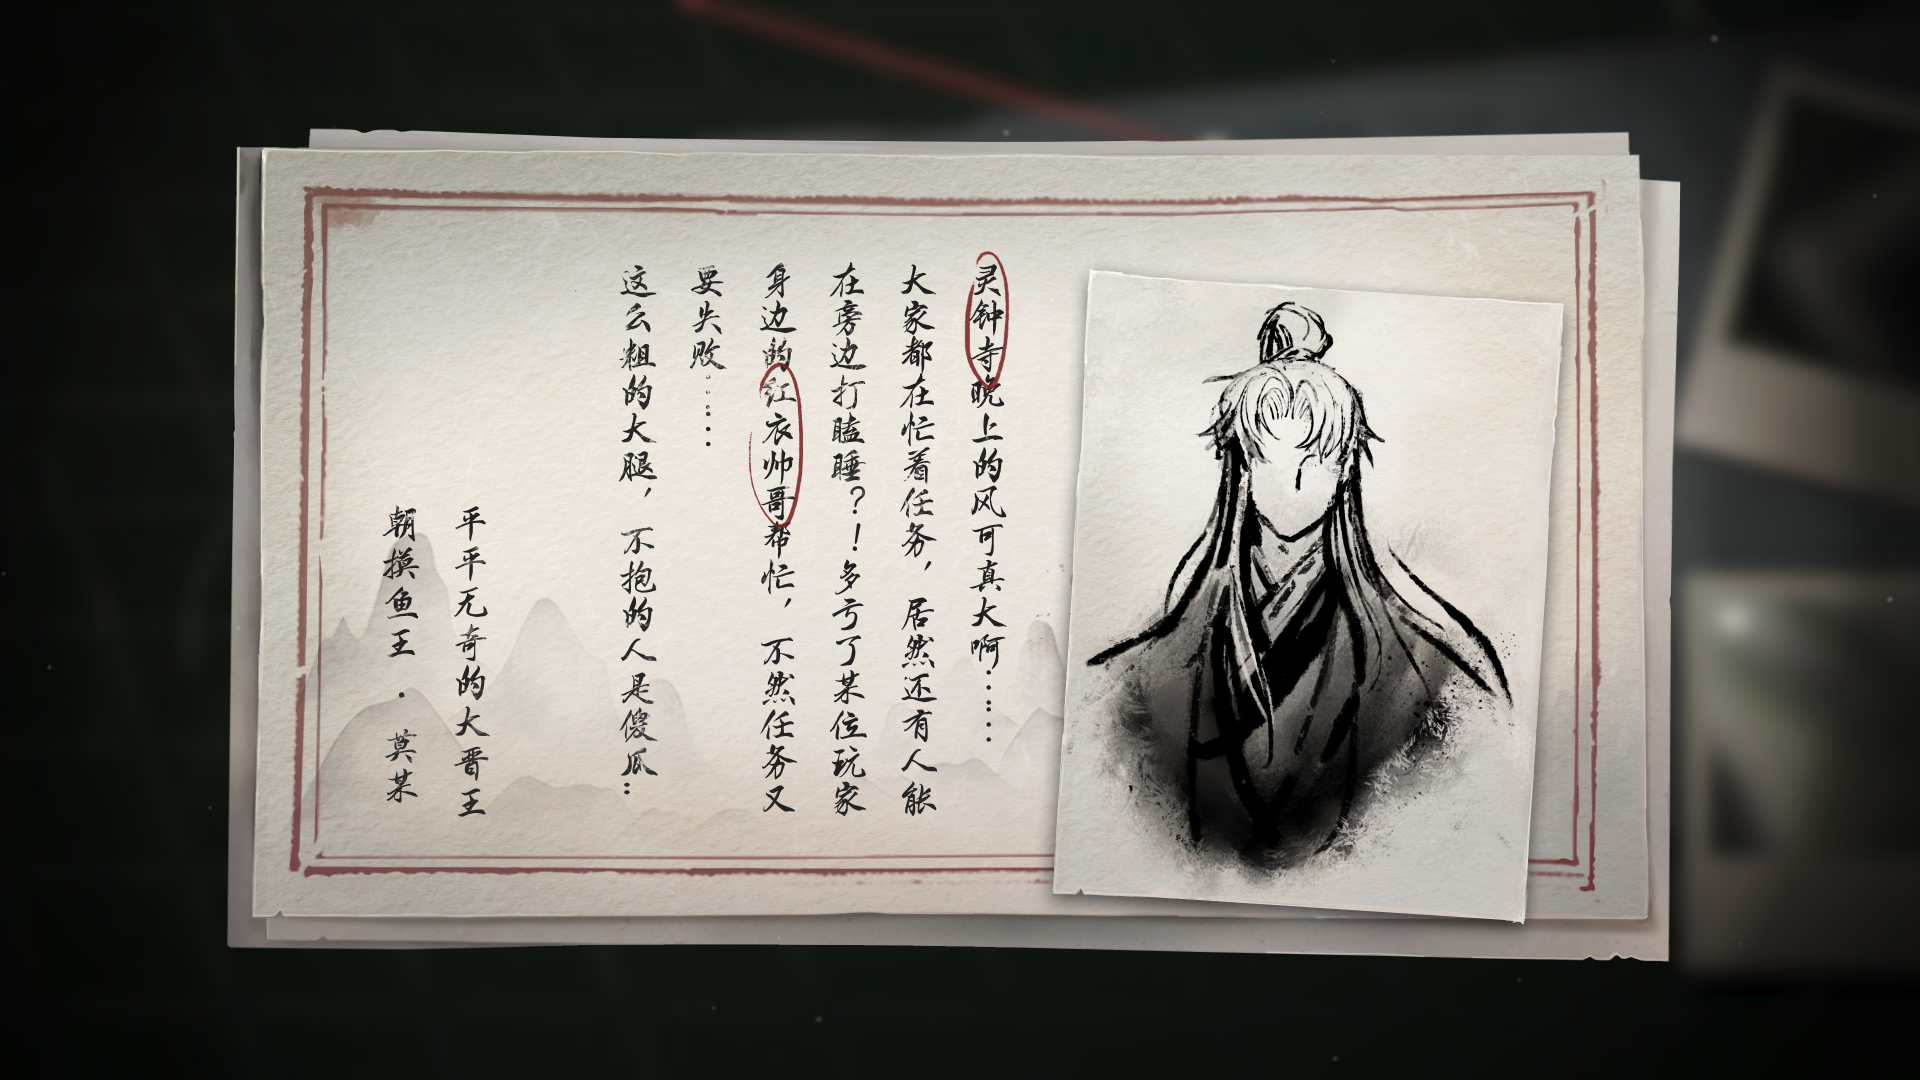 灵钟寺晚上的风可真大啊……
大家都在忙着任务，居然还有人能
在旁边打瞌睡？！多亏了某位玩家
身边的红衣帅哥帮忙，不然任务又
要失败……
这么粗的大腿，不抱的人是傻瓜：
平平无奇的大晋王
朝摸鱼王·莫某